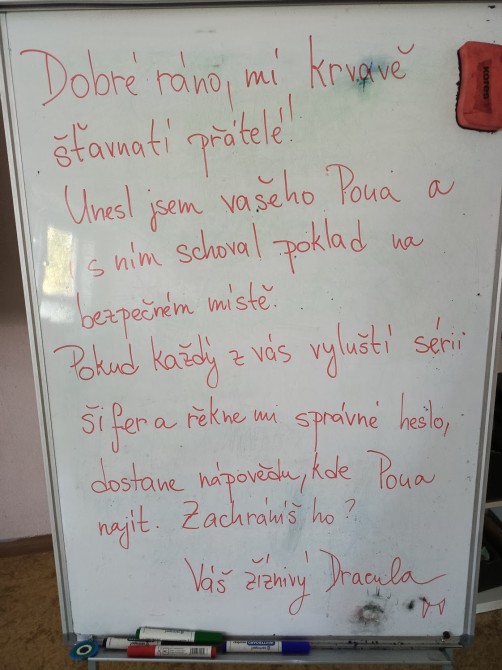 Dobré ráno, mí krvavě
šťavnatí přátelé!
Unesl jsem vašeho Poua a
s ním schoval poklad na
bezpečném místě.
Pokud každý z vás vyluští sérii
šifer a řekne mi správné heslo,
dostane nápovědu, kde Poua
najít. Zachráníš ho?
Váš žíznivý Dracula
KORES